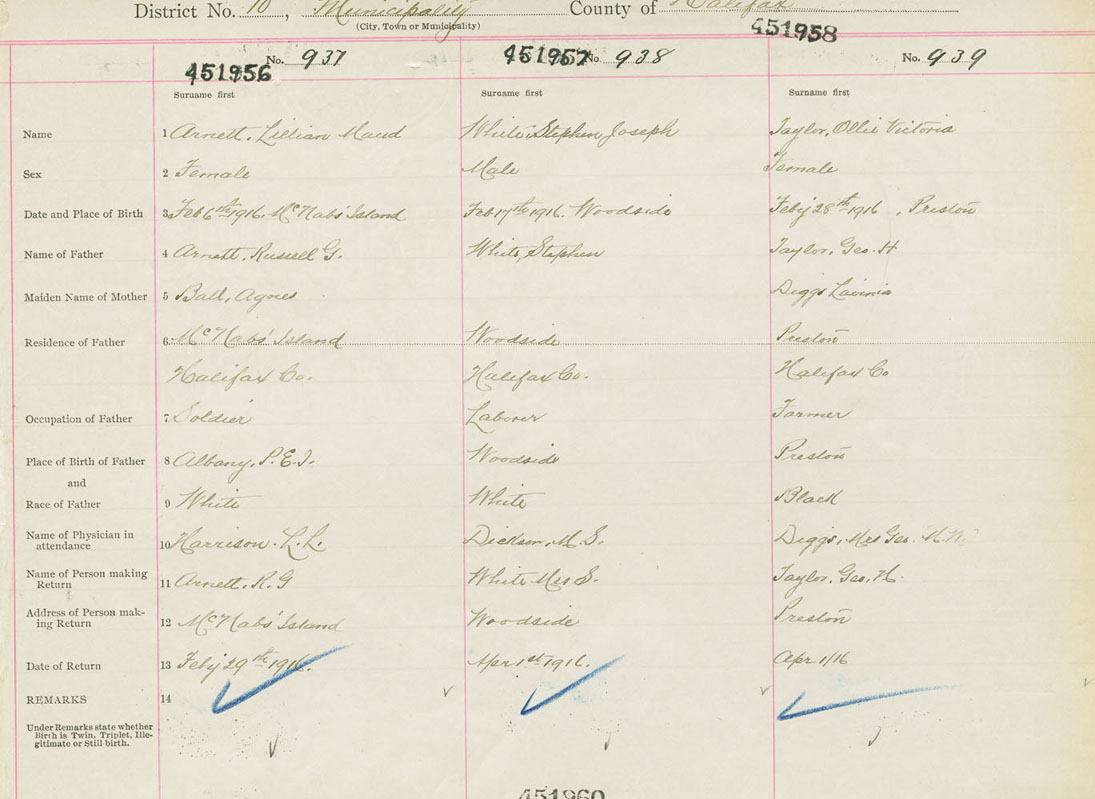 District No. 10, Municipality County of Halifax
(City, Town or Municipality)
451958
No. 937 No. 938 No. 939
451956 451957
Surname first Surname first Surname first
Name 1 Arnett, Lillian Maud White, Stephen Joseph Taylor, Ollie Victoria
Sex 2 Female Male Female
Date and Place of Birth 3 Feb 6th 1916, McNabs' Island Feb 17th 1916. Woodside Feby 28th 1916, Preston
Name of Father 4 Arnett, Russell G. White, Stephen Taylor, Geo. H
Maiden Name of Mother 5 Ball, Agnes Diggs Lavinia
Residence of Father 6 McNabs' Island Woodside Preston
Halifax Co. Halifax Co. Halifax Co
Occupation of Father 7 Soldier Laborer Farmer
Place of Birth of Father 8 Albany, P.E.I. Woodside Preston
and
Race of Father 9 White White Black
Name of Physician in
attendance 10 Harrison. L.L. Dickson, M.S. Diggs, Mrs Geo.
Name of Person making
Return 11 Arnett. R.G White Mrs S. Taylor, Geo. H.
Address of Person mak-
ing Return 12 McNabs' Island Woodside Preston
Date of Return 13 Feby 29th 1916. Apr 1st 1916. Apr 1/16
REMARKS 14
Under Remarks state whether
Birth is Twin, Triplet, Ille-
gitimate or Still-birth.
451960